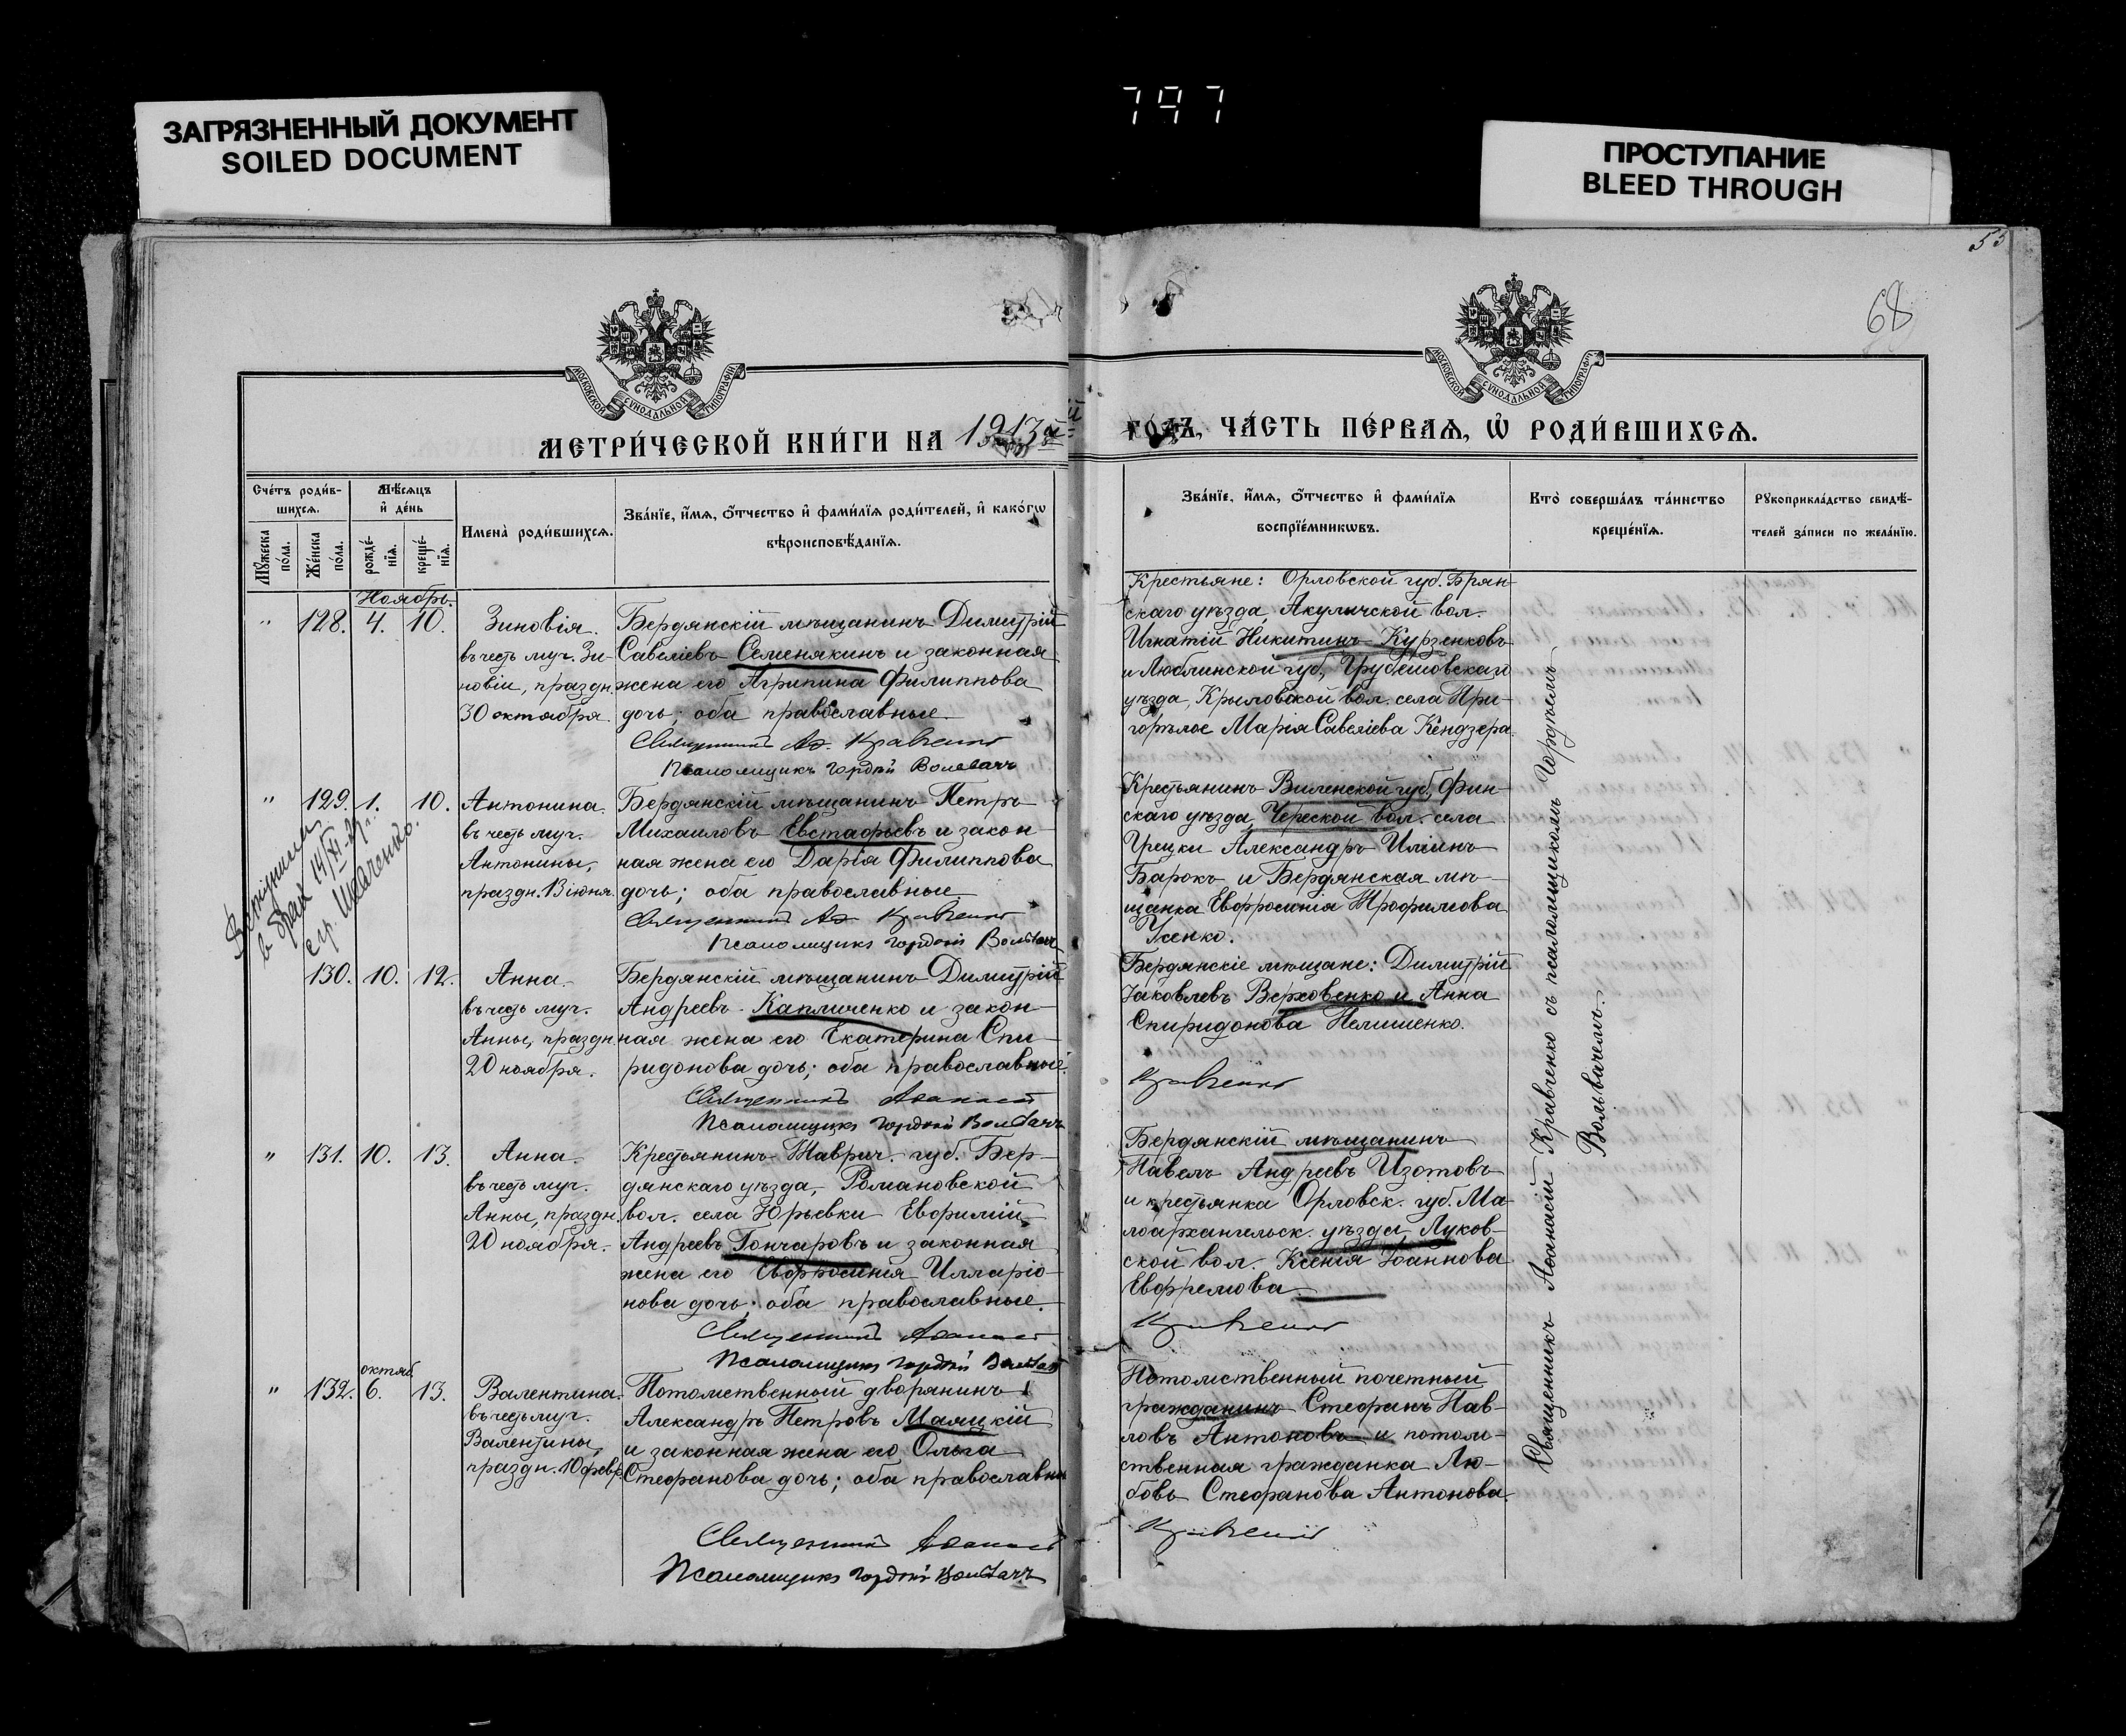 797
ЗАГРЯЗНЕННЫЙ ДОКУМЕНТ
SOILED DOCUMENT
ПРОСТУПАНИЕ
BLEED THROUGH
55
68
МОСКОВСКОЙ СѴНОДАЛЬНОЙ ТИПОГРАФІИ
МОСКОВСКОЙ СѴНОДАЛЬНОЙ ТИПОГРАФІИ
МЕТРИ́ЧЕСКОЙ КНИ́ГИ НА 1913й
ГО́ДЪ, ЧА́СТЬ ПЕ́РВАЯ, Ѡ҆ РОДИ́ВШИХСѦ.
Сче́тъ роди́в-
шихсѧ.
Мꙋ́жеска по́ла.
Же́нска по́ла.
Мѣ́сѧцъ
и҆ де́нь
рожде́-
нїѧ.
креще́-
нїѧ.
Имена̀ роди́вшихсѧ.
Зва́нїе, и҆́мѧ, ѻ҆́тчество и҆ фами́лїѧ роди́телей, и҆ како́гѡ
вѣроисповѣ́данїѧ.
Зва́нїе, и҆́мѧ, ѻ҆́тчество и҆ фами́лїѧ
воспрїе́мникѡвъ.
Кто̀ соверша́лъ та́инство
креще́нїѧ.
Рꙋкоприкла́дство свидѣ́-
телей за́писи по жела́нїю.
Ноябрь.
" 128. 4. 10.
Зиновія.
въ честь муч. Зи-
новіи, праздн.
30 октября.
Бердянскій мѣщанинъ Димитрій
Савеліевъ Семенякинъ и законная
жена его Агрипина Филиппова
дочь; оба православные.
Священникъ Аѳ. Кравченко
Псаломщикъ Гордѣй Вольвачъ
Крестьяне: Орловской губ. Брян-
скаго уѣзда, Акуличской вол.
Игнатій Никитинъ Курзенковъ
и Люблинской губ., Грубешовскаго
уѣзда, Крыловской вол. села При-
горѣлое Марія Савеліева Кендзера.
" 129. 1. 10.
Вступила
в брак 14/XI-
Антонина.
въ честь муч.
Антонины,
праздн. 13 іюня.
Бердянскій мѣщанинъ Петръ
Михаиловъ Евстафьевъ и закон-
ная жена его Дарія Филиппова
дочь; оба православные
Священникъ Аѳ. Кравченко
Псаломщикъ Гордѣй Вольвачъ
Крестьянинъ Виленской губ., Фин-
скаго уѣзда, Череской вол. села
Урецки Александръ Иліинъ
Барокъ и Бердянская мѣ-
щанка Евфросинія Трофимова
Усенко.
130. 10. 12.
Анна.
въ честь муч.
Анны, праздн.
20 ноября.
Бердянскій мѣщанинъ Димитрій
Андреевъ Капличенко и закон-
ная жена его Екатерина Спи-
ридонова дочь; оба православные.
Священникъ Аѳанасій
Псаломщикъ Гордѣй Вольвачъ
Бердянскіе мѣщане: Димитрій
Іаковлевъ Верховенко и Анна
Спиридонова Пелишенко.
Кравченко
" 131. 10. 13.
Анна.
въ честь муч.
Анны, праздн.
20 ноября.
Крестьянинъ Таврич. губ. Бер-
дянскаго уѣзда, Романовской
вол. села Юрьевки Евфимій
Андреевъ Гончаровъ и законная
жена его Евфросинія Илларіо-
нова дочь; оба православные.
Священникъ Аѳанасій
Псаломщикъ Гордѣй Вольвачъ
Бердянскій мѣщанинъ
Павелъ Андреевъ Изотовъ
и крестьянка Орловск. губ. Ма-
лоархангельск. уѣзда, Луков-
ской вол. Ксенія Іоаннова
Ефремова
Кравченко
октяб.
" 132. 6. 13.
Валентина.
въ честь муч.
Валентины,
праздн. 10 февр.
Потомственный дворянинъ
Александръ Петровъ Маяцкій
и законная жена его Ольга
Стефанова дочь; оба православны
Священникъ Аѳанасій
Псаломщикъ Гордѣй Вольвачъ
Потомственный почетный
гражданинъ Стефанъ Пав-
ловъ Антоновъ и потом-
ственная гражданка Лю-
бовь Стефанова Антонова.
Кравченко
Священникъ Аѳанасій Кравченко съ псаломщикомъ Гордѣемъ
Вольвачемъ.